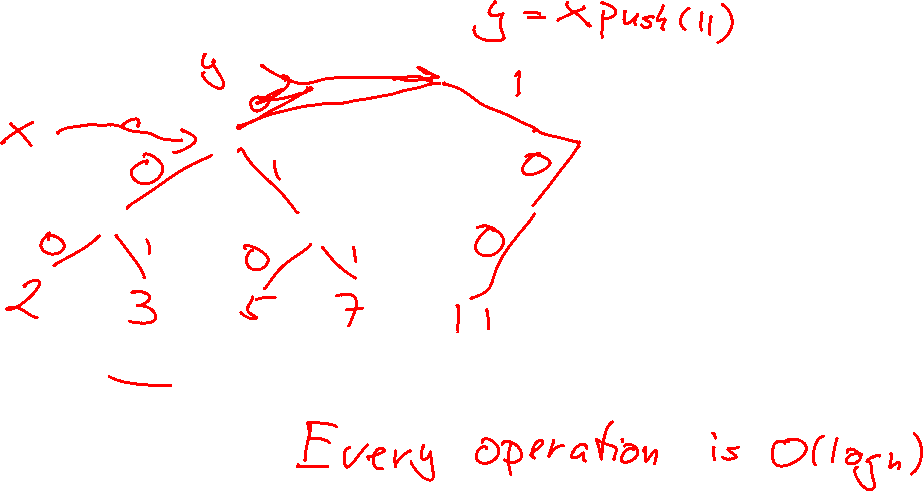 y = x push(11)
y
1
x
0
0
1
0
0
1
0
1
0
2
3
5
7
11
Every operation is O(log n)